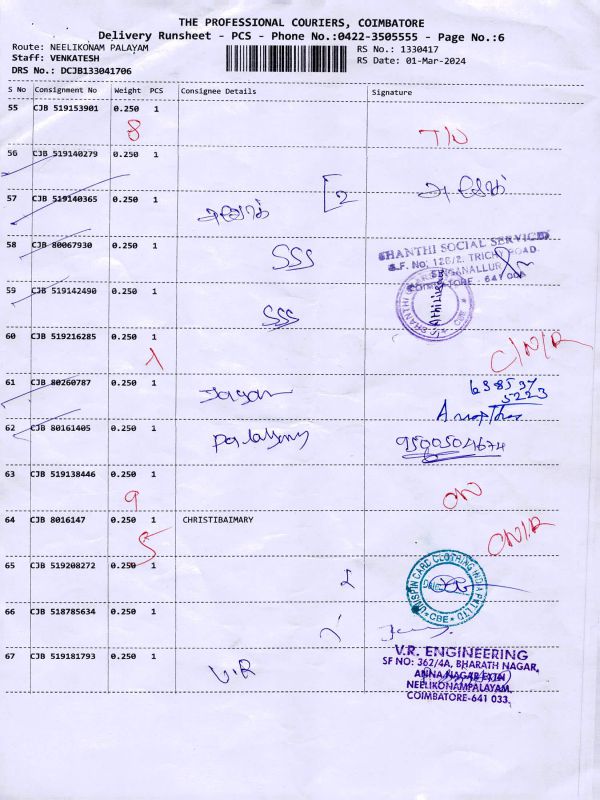 THE PROFESSIONAL COURIERS, COIMBATORE
Delivery Runsheet - PCS - Phone No.:0422-3505555 - Page No.:6
Route: NEELIKONAM PALAYAM
RS No.: 1330417
Staff: VENKATESH
RS Date: 01-Mar-2024
DRS No.: DCJB133041706
S No Consignment No Weight PCS Consignee Details Signature
55 CJB 519153901 0.250 1
8
56 CJB 519140279 0.250 1
2
57 CJB 519140365 0.250 1
58 CJB 80067930 0.250 1
SSS
SHANTHI SOCIAL SERVICES
S.F. No: 128/2, TRICHY ROAD
SINGANALLUR
COIMBATORE
59 CJB 519142490 0.250 1
SSS
60 CJB 519216285 0.250 1
C/N/R
61 CJB 80260787 0.250 1
62 CJB 80161405 0.250 1
9500504674
63 CJB 519138446 0.250 1
9
64 CJB 8016147 0.250 1 CHRISTIBAIMARY
5
65 CJB 519208272 0.250 1
66 CJB 518785634 0.250 1
67 CJB 519181793 0.250 1
V.R
V.R. ENGINEERING
SF NO: 362/4A, BHARATH NAGAR,
ANNA NAGAR EXTN
NEELIKONAMPALAYAM,
COIMBATORE-641 033.